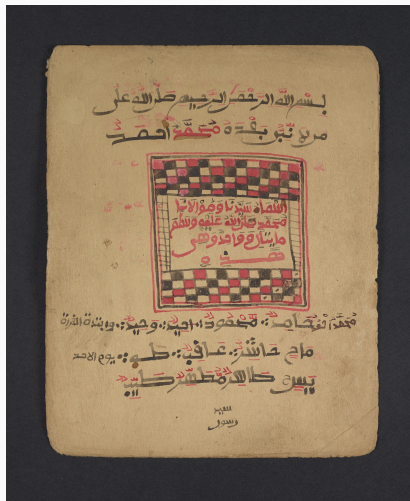 بسم الله الرحمن الرحيم صلى الله على
من لا نبي بعده محمد احمد
اسماء سيدنا ومولانا
محمد صلى الله عليه وسلم
مايتان واحد وهي
هذه
حامد محمود احيد وحيد
ماح حاشر عاقب طه يوم الاحد
يس طاهر مطهر طيب
سيد
رسول